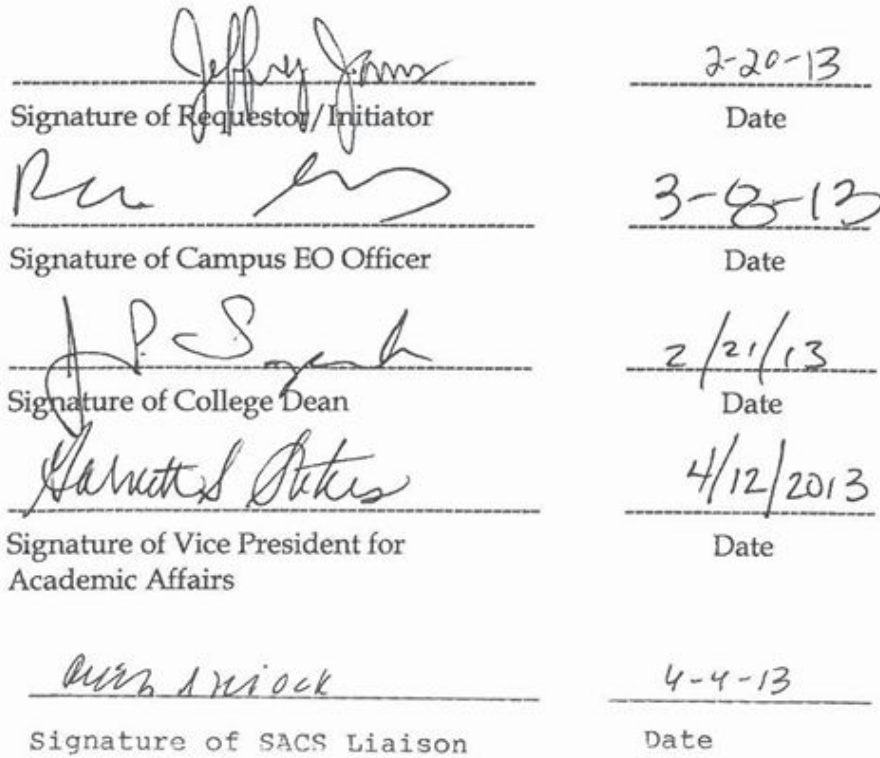 Jeffrey 2-20-13
Signature of Requestor/Initiator Date
3-8-13
Signature of Campus EO Officer Date
J. P. 2/21/13
Signature of College Dean Date
4/12/2013
Signature of Vice President for Date
Academic Affairs
4-4-13
Signature of SACS Liaison Date